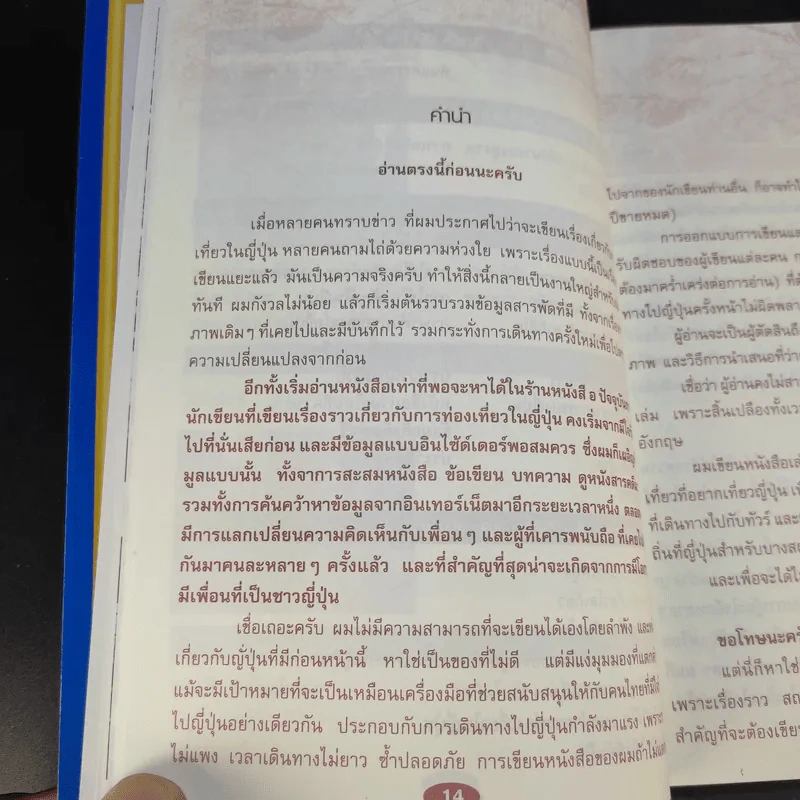 คำนำ
อ่านตรงนี้ก่อนนะครับ
เมื่อหลายคนทราบข่าว ที่ผมประกาศไปว่าจะเขียนเรื่องเกี่ยวกับ
เที่ยวในญี่ปุ่น หลายคนถามไถ่ด้วยความห่วงใย เพราะเรื่องแบบนี้เป็น
เขียนแยะแล้ว มันเป็นความจริงครับ ทำให้สิ่งนี้กลายเป็นงานใหญ่สำหรับ
ทันที ผมกังวลไม่น้อย แล้วก็เริ่มต้นรวบรวมข้อมูลสารพัดที่มี ทั้งจากเรื่อง
ภาพเดิมๆ ที่เคยไปและมีบันทึกไว้ รวมกระทั่งการเดินทางครั้งใหม่เพื่อ
ความเปลี่ยนแปลงจากก่อน
อีกทั้งเริ่มอ่านหนังสือเท่าที่พอจะหาได้ในร้านหนังสือ ปัจจุบัน
นักเขียนที่เขียนเรื่องราวเกี่ยวกับการท่องเที่ยวในญี่ปุ่น คงเริ่มจากมี
ไปที่นั่นเสียก่อน และมีข้อมูลแบบอินไซด์เดอร์พอสมควร ซึ่งผมก็
มูลแบบนั้น ทั้งจาการสะสมหนังสือ ข้อเขียน บทความ ดูหนังสารคดี
รวมทั้งการค้นคว้าหาข้อมูลจากอินเทอร์เน็ตมาอีกระยะเวลาหนึ่ง ตลอด
มีการแลกเปลี่ยนความคิดเห็นกับเพื่อนๆ และผู้ที่เคารพนับถือ ที่เคย
กันมาคนละหลายๆ ครั้งแล้ว และที่สำคัญที่สุดน่าจะเกิดจากการมี
มีเพื่อนที่เป็นชาวญี่ปุ่น
เชื่อเถอะครับ ผมไม่มีความสามารถที่จะเขียนได้เองโดยลำพัง และ
เกี่ยวกับญี่ปุ่นที่มีก่อนหน้านี้ หาใช่เป็นของที่ไม่ดี แต่มีแง่มุมมองที่แตก
แม้จะมีเป้าหมายที่จะเป็นเหมือนเครื่องมือที่ช่วยสนับสนุนให้กับคนไทยที่
ไปญี่ปุ่นอย่างเดียวกัน ประกอบกับการเดินทางไปญี่ปุ่นกำลังมาแรง เพราะ
ไม่แพง เวลาเดินทางไม่ยาว ซ้ำปลอดภัย การเขียนหนังสือของผมถ้าไม่
14
ไปจากของนักเขียนท่านอื่น ก็อาจทำ
ปีขายหมด)
การออกแบบการเขียน
รับผิดชอบของผู้เขียนแต่ละคน
ต้องมาคร่ำเคร่งต่อการอ่าน)
ทางไปญี่ปุ่นครั้งหน้าไม่ผิดพลา
ผู้อ่านจะเป็นผู้ตัดสิน
ภาพ และวิธีการนำเสนอที่
เชื่อว่า ผู้อ่านคงไม่
เล่ม เพราะสิ้นเปลืองทั้งเว
อังกฤษ
ผมเขียนหนังสือ
เที่ยวที่อยากเที่ยวญี่ปุ่น
ที่เดินทางไปกับทัวร์ และ
ถิ่นที่ญี่ปุ่นสำหรับบาง
และเพื่อจะได้
ขอโทษนะคร
แต่นี่ก็หาใช่
เพราะเรื่องราว
สำคัญที่จะต้องเขีย